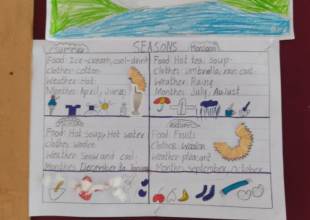 Summer SEASONS Monsoon
Food: Ice-cream, cool-drink
Clothes: cotton
Weather: Hot
Months: April, June
Food: Hot tea, Soup
Clothes: umbrella, rain coat
Weather: Rainy
Months: July, August
Food: Hot Soup, Hot water
Clothes: Woolen
Weather: Snow and cool
Months: December to
Autumn
Food: Fruits
Clothes: Woolen
Weather: pleasant
Months: September, October